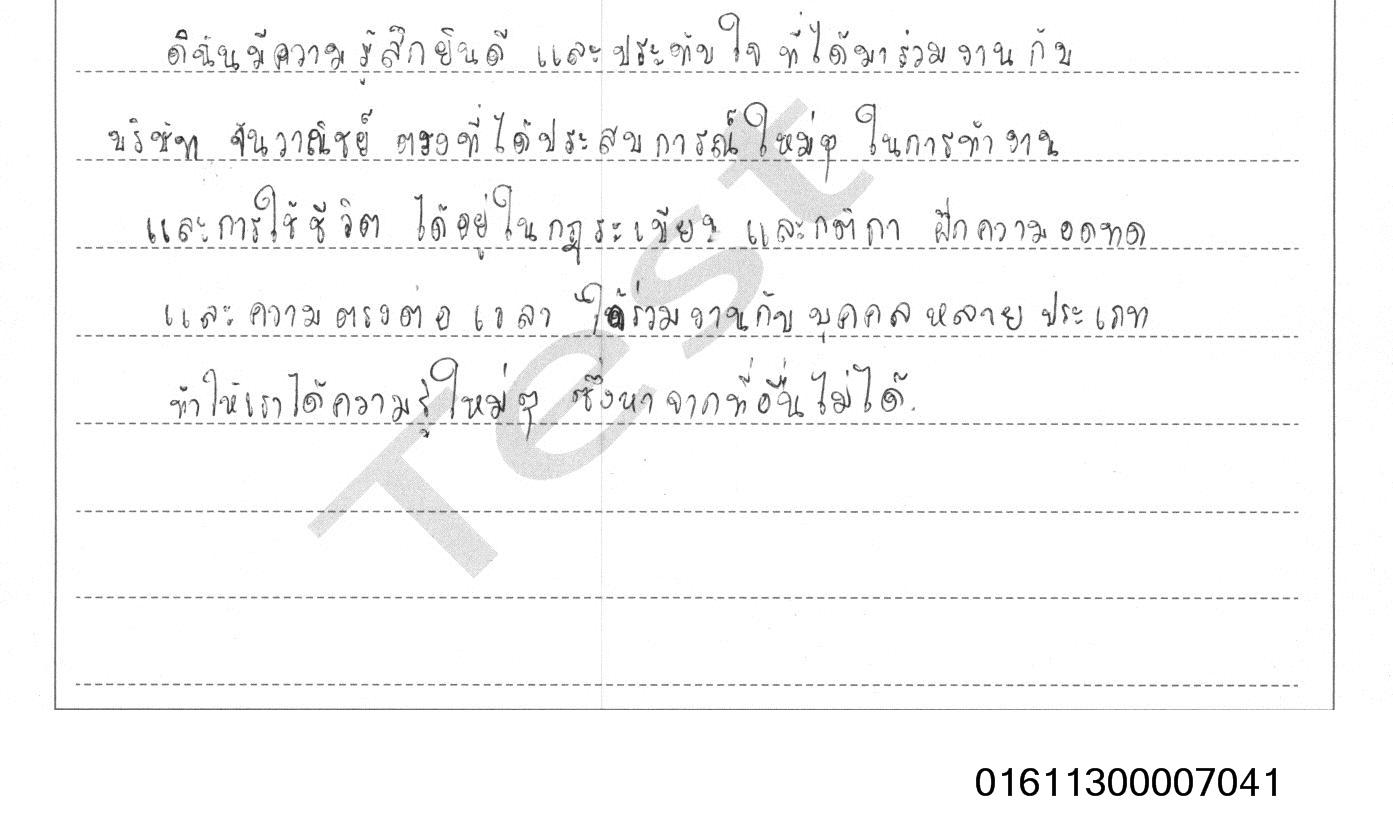 ดิฉันมีความรู้สึกยินดี และประทับใจ ที่ได้มาร่วมงานกับ
บริษัท จันวาณิชย์ ตรงที่ได้ประสบการณ์ใหม่ๆ ในการทำงาน
และการใช้ชีวิต ได้อยู่ในกฎระเบียบ และกติกา ฝึกความอดทด
และความตรงต่อเวลา ได้ร่วมงานกับบุคคลหลายประเภท
ทำให้เราได้ความรู้ใหม่ๆ ซึ่งหาจากที่อื่นไม่ได้.
Test
01611300007041